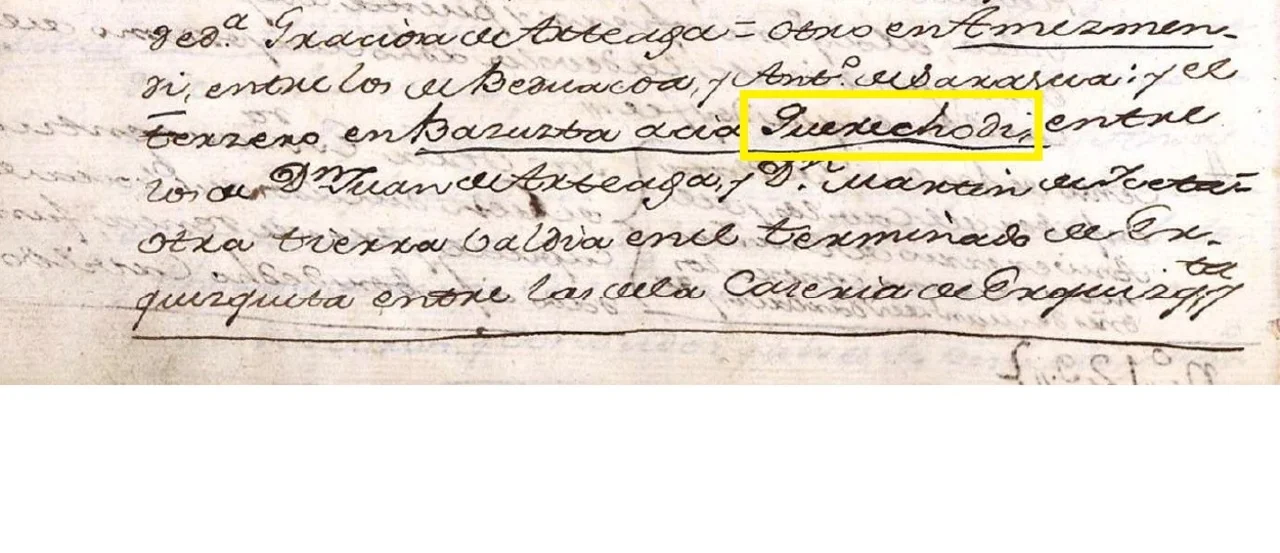 de d.ª Graciosa de Arteaga = otro en Amezmen-
di, entre los de Beduacoa, y Ant.º de Sarasua: y el
terzero en Bazuzta acia Guerechodi, entre
los de Dⁿ Juan de Arteaga, y D.ⁿ Martin de
otra tierra valdia en el terminado de Er-
quizquita entre las de la Caseria de Erquizqᵗᵃ